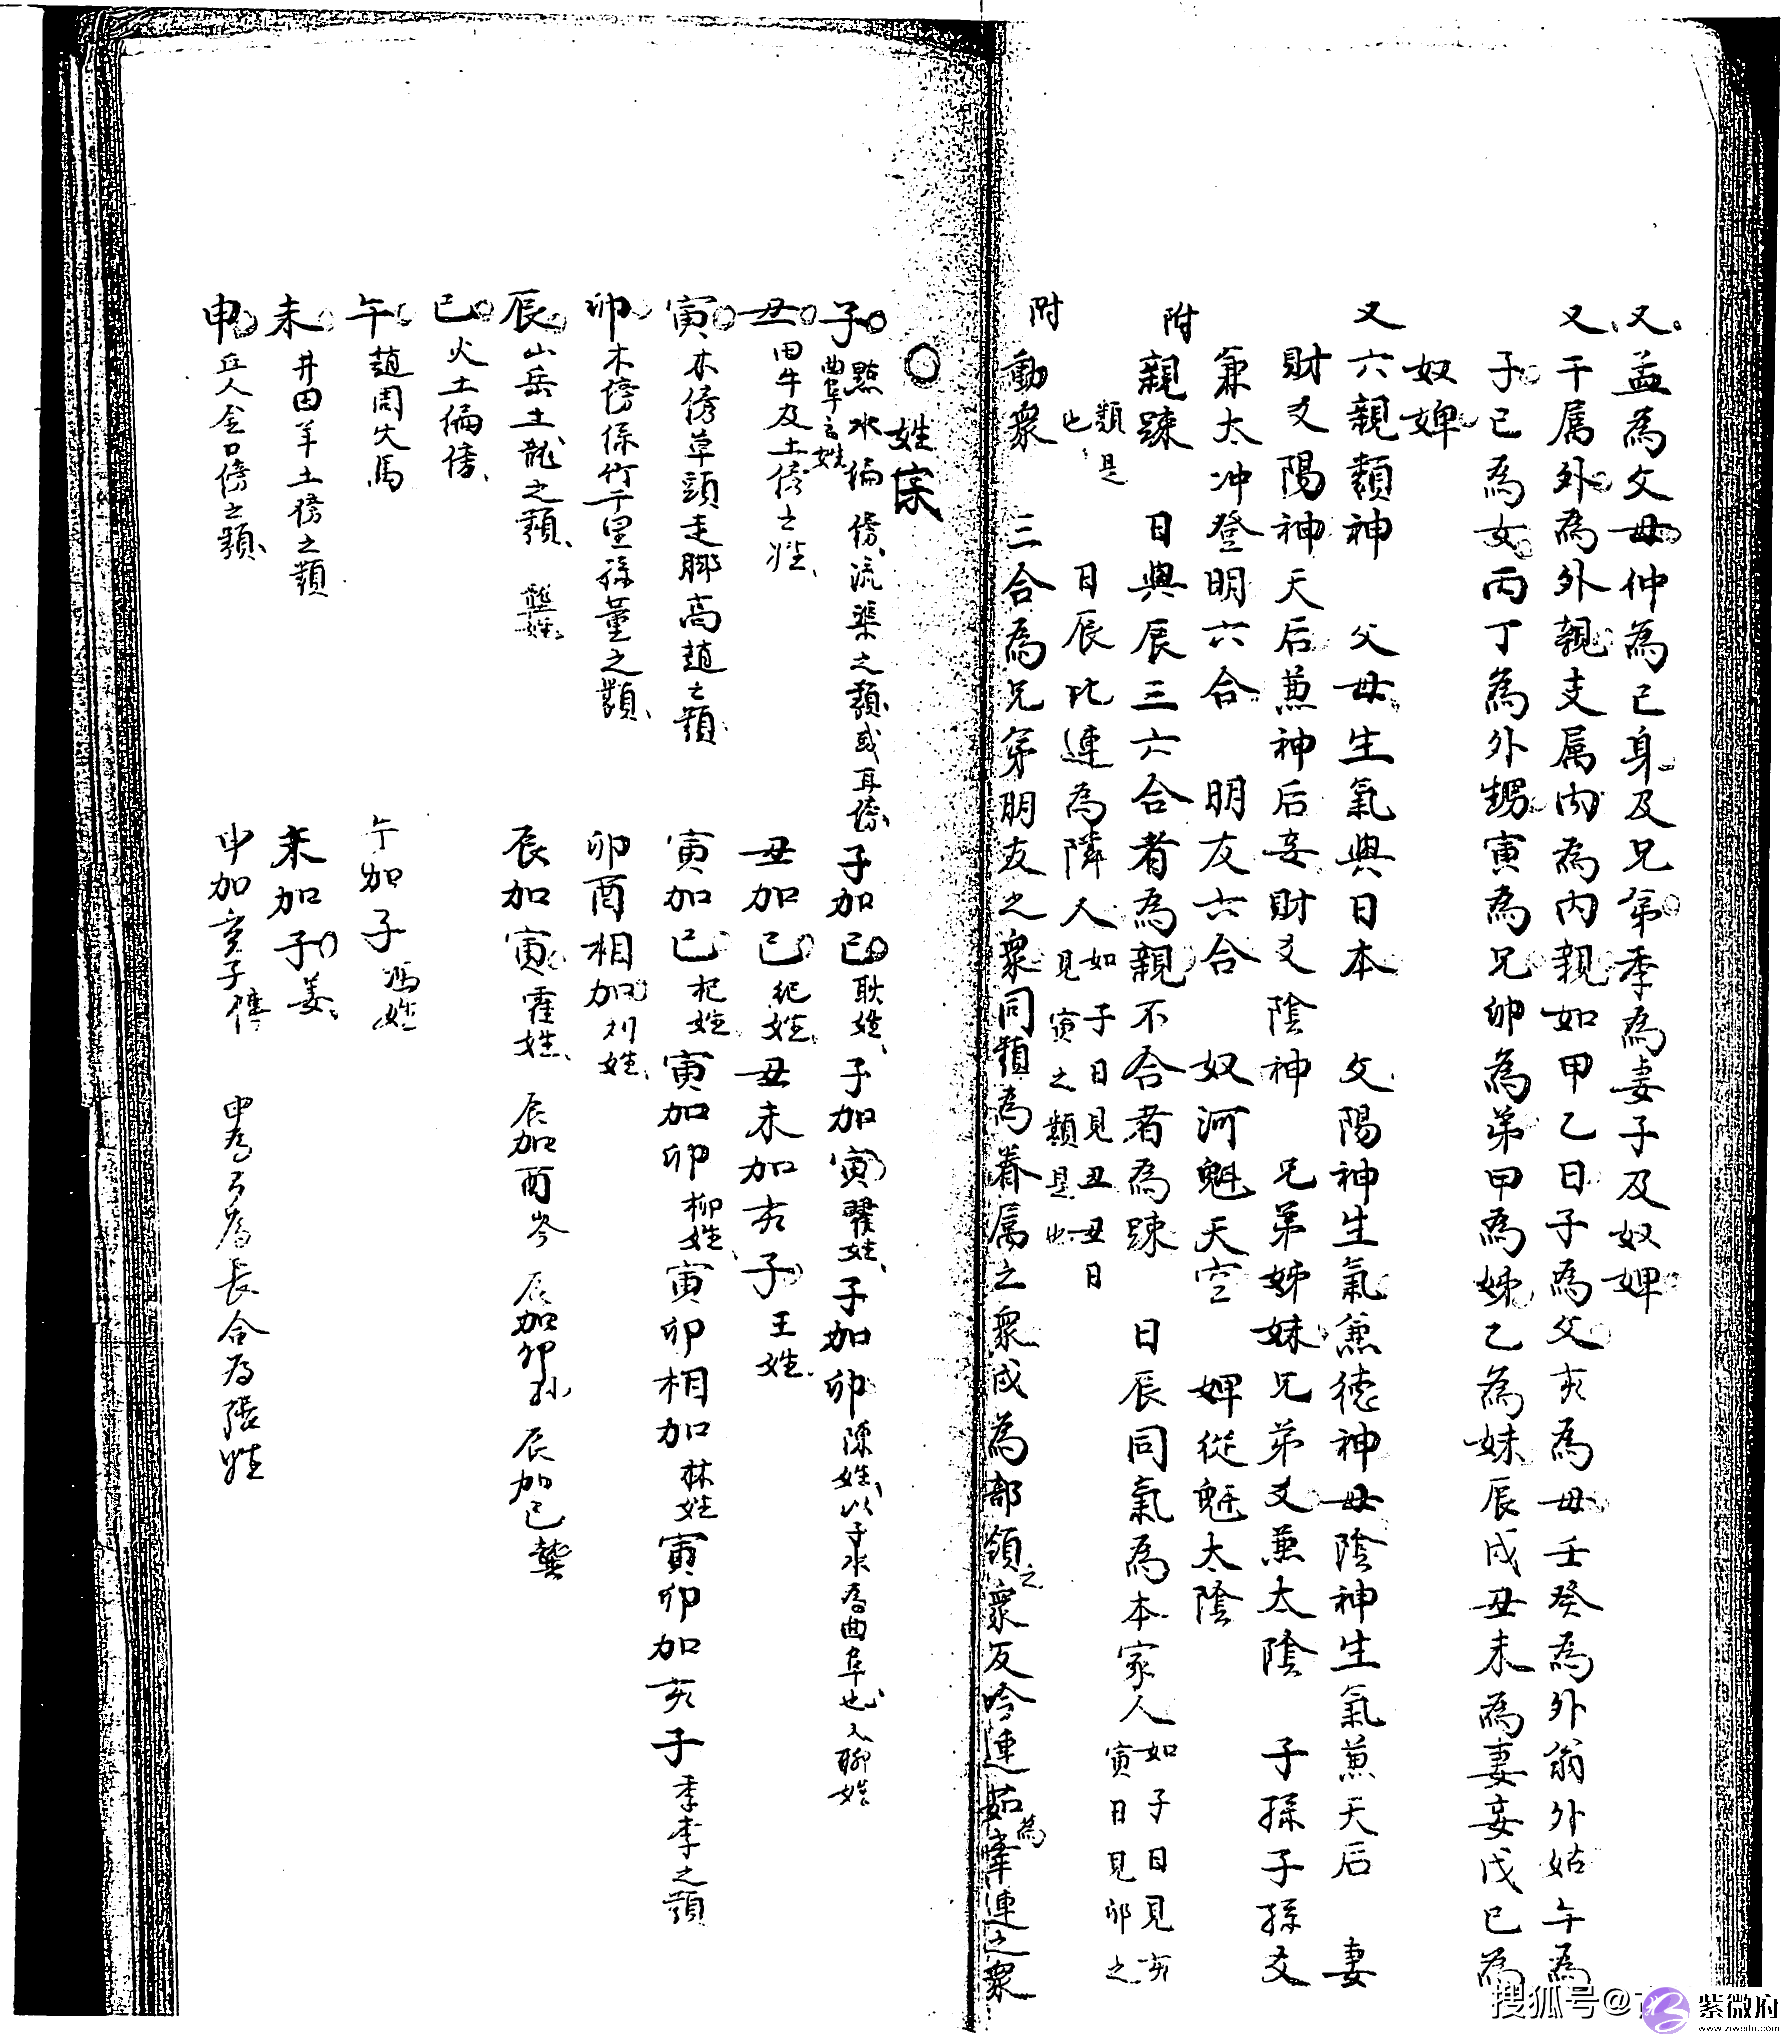 又孟為父母仲為己身及兄弟季為妻子及奴婢
又干属外為外親支属内為内親如甲乙日子為父亥為母壬癸為外翁外姑午為
子巳為女丙丁為外甥寅為兄卯為弟甲為姊乙為妹辰戌丑未為妻妾戊己為
奴婢
又六親類神 父母生氣與日本 父陽神生氣兼德神母陰神生氣兼天后 妻
財爻陽神天后兼神后妾財爻陰神 兄弟姊妹兄弟爻兼太陰 子孫子孫爻
兼太冲登明六合 朋友六合 奴河魁天空 婢從魁太陰
附 親疎 日與辰三六合者為親不合者為疎 日辰同氣為本家人如子日見亥寅日見卯之
類是也 日辰比連為隣人如子日見丑丑日見寅之類是也
附 動衆 三合為兄弟朋友之衆同類為眷属之衆戌為部領之衆反吟連茹為牽連之衆
○姓宗
子 點水偏傍流渠之類或耳傍 曲阜言姓 子加巳耿姓子加寅翟姓子加卯陳姓以子水為曲阜也又聊姓
丑 田牛及土傍之姓 丑加巳紀姓丑未加亥子王姓
寅 木傍草頭走脚高趙之類 寅加巳杞姓寅加卯柳姓寅卯相加林姓寅卯加亥子季李之類
卯 木傍係竹千里孫董之類 卯酉相加刘姓
辰 山岳土龍之類 龔姓 辰加寅霍姓 辰加酉岑 辰加卯孙 辰加巳龔
巳 火土偏傍
午 趙周火馬 午加子馮姓
未 井田羊土傍之類 未加子姜
申 丘人金口傍之類 申加亥子傅 申為弓為長合為張姓
搜狐号@
紫微府
www.ziweifu.com